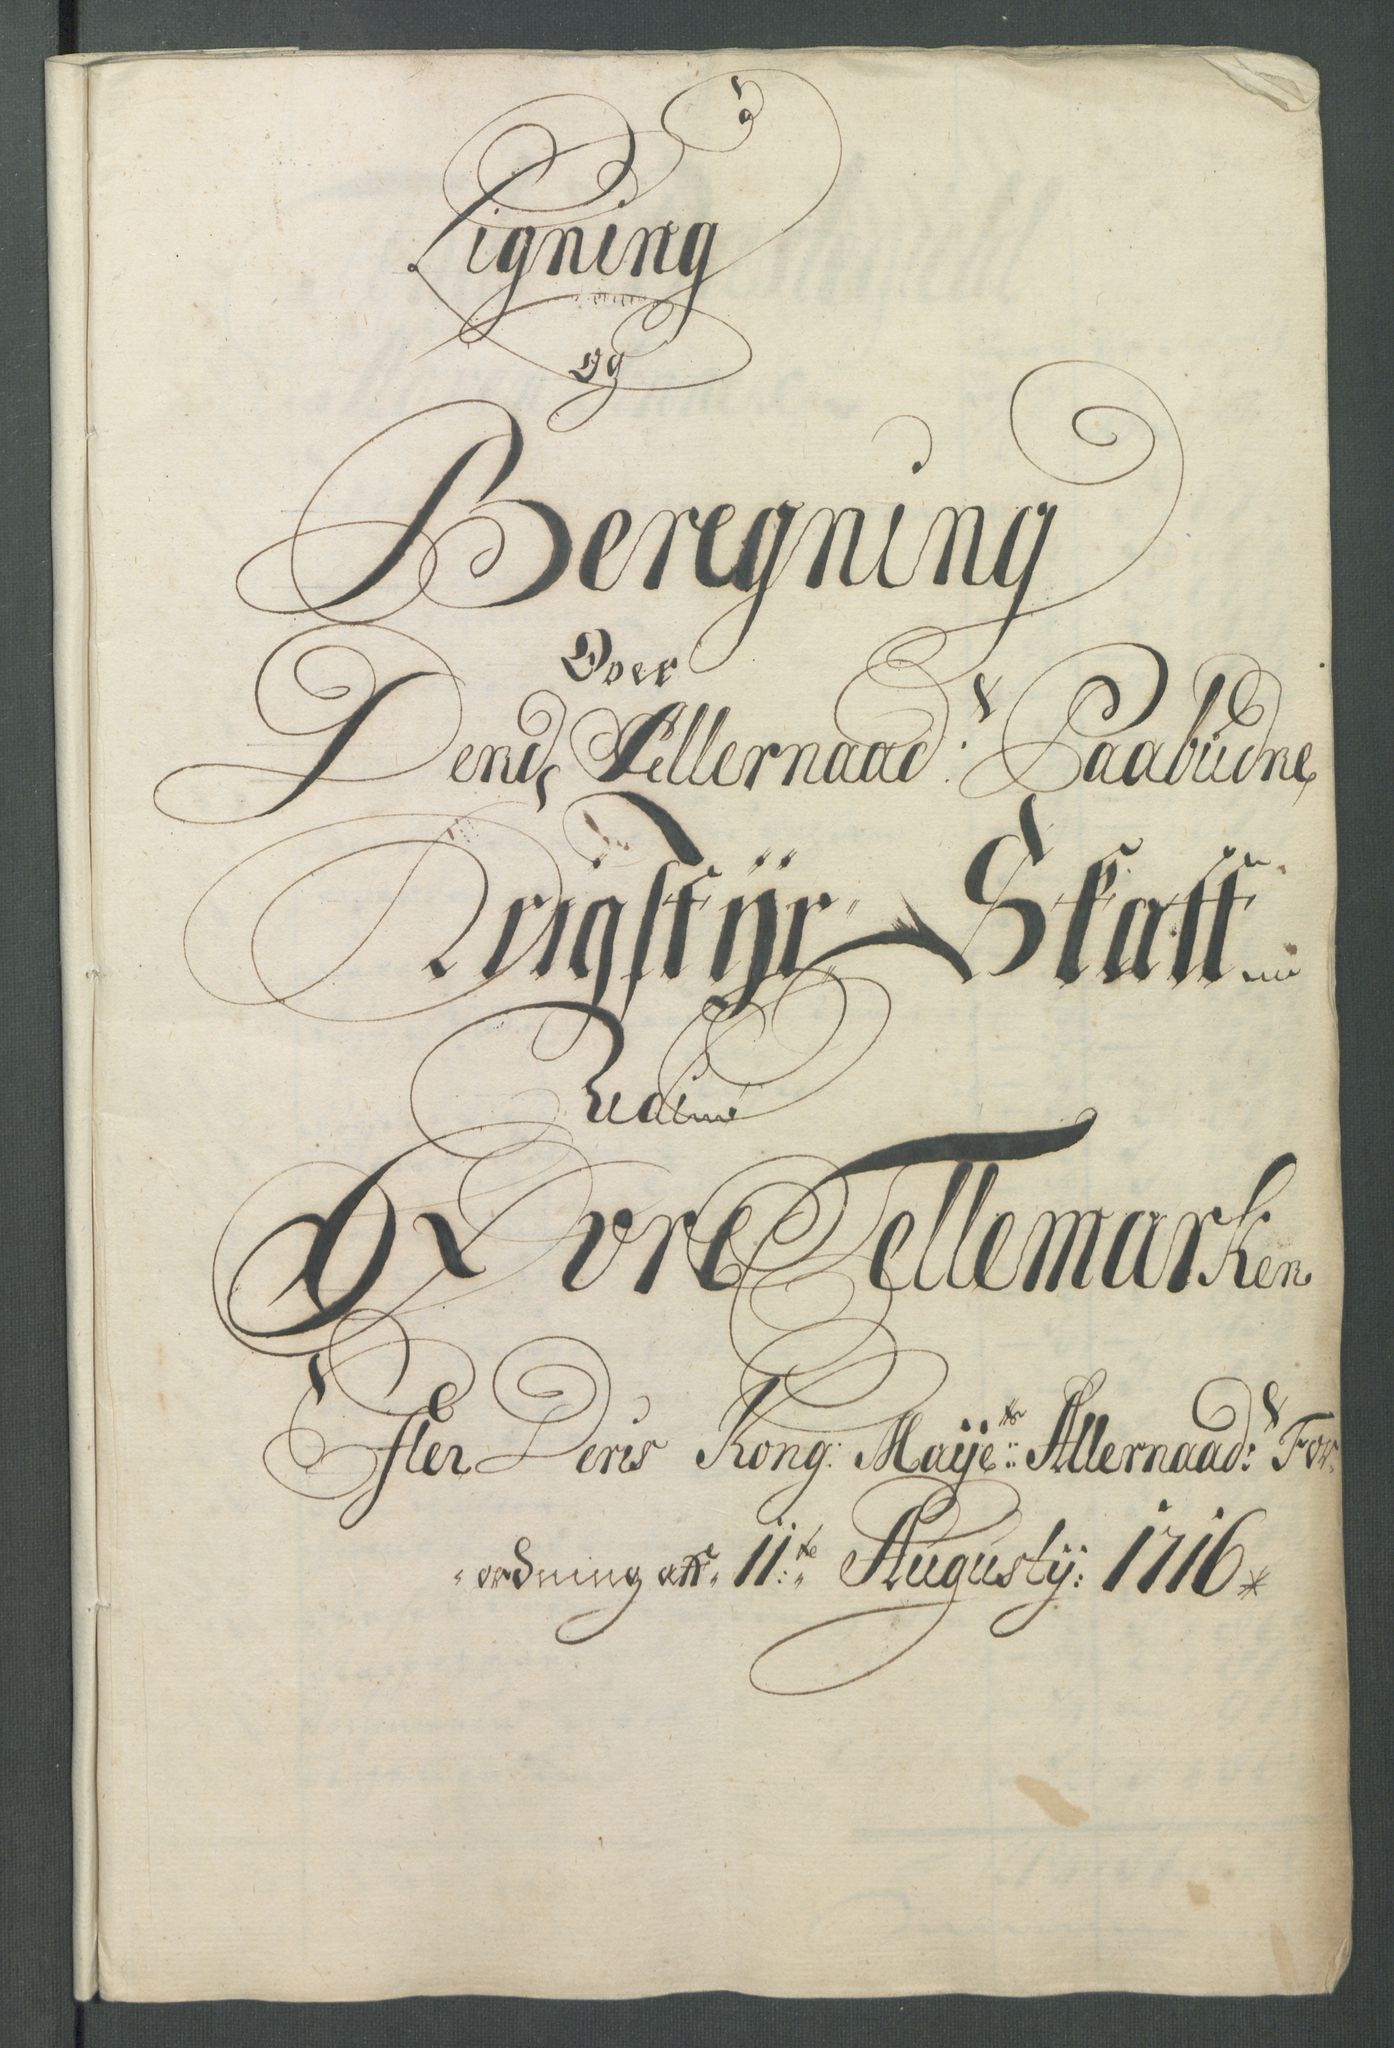 Ligning
og
Beregning
Over
Dend Allernaad: Paabudne
Krigstÿr Skatt
Udi
Øvre Tellemarken
Efter Deris Kong: Maÿe:ts Allernaad: For
ordning aff 11:te Augustÿ: 1716